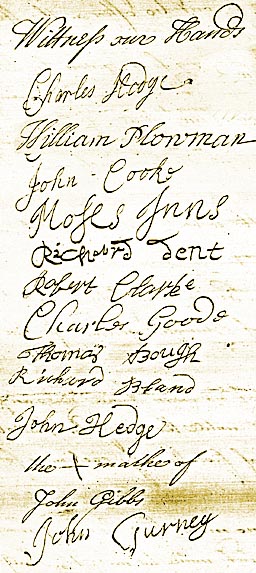 Wittness our Hands
Charles Hodge
William Plowman
John Cooke
Moses Inns
Richard Dent
Robert Clarke
Charles Goode
Thomas Gough
Richard Bland
John Hedge
the + marke of
John Gibbs
John Gurney